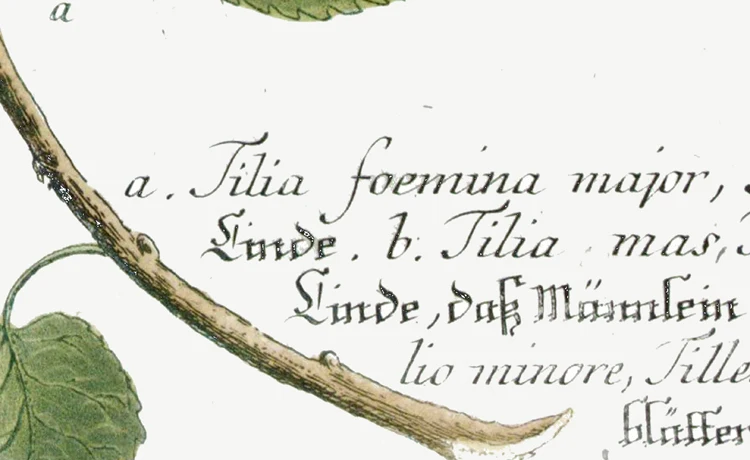 a
a. Tilia foemina major,
Linde. b. Tilia mas,
Linde, daß Männlein
lio minore, Tille
blätter